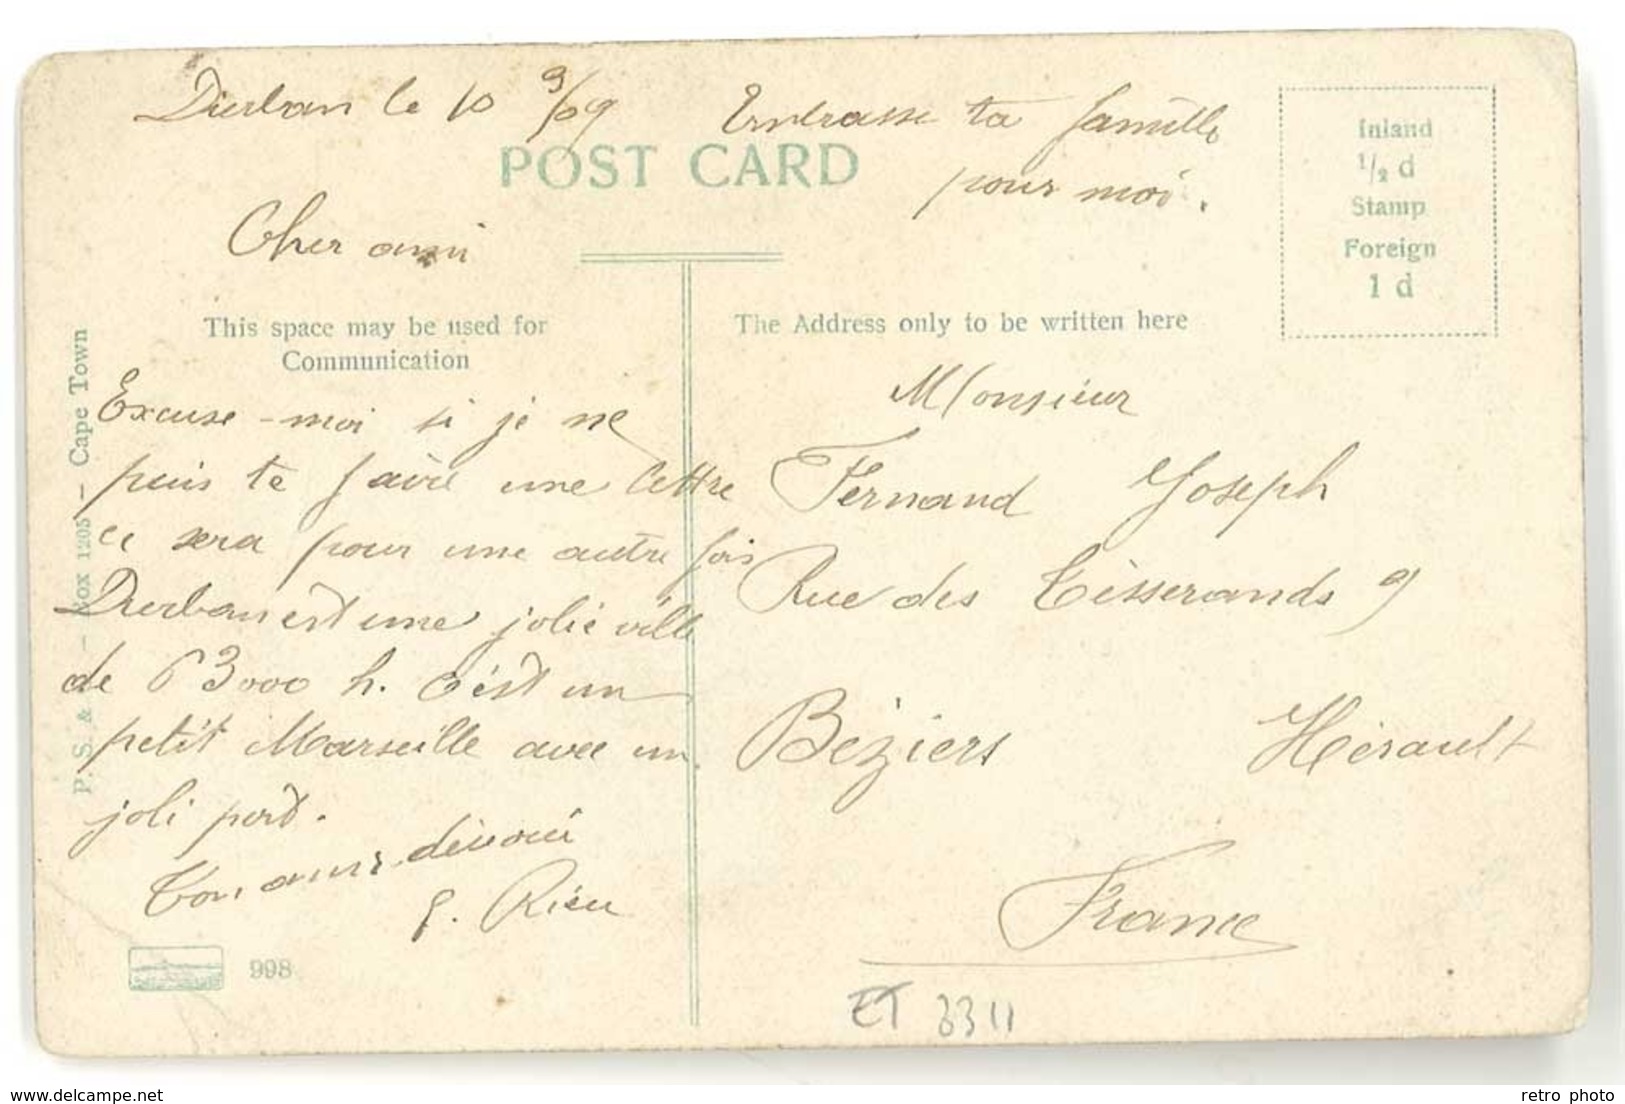 Durban le 10 9/09
Embrasse ta famille
pour moi.
POST CARD
Inland
½ d
Stamp
Foreign
1 d
Cher ami
This space may be used for
Communication
The Address only to be written here
Excuse-moi si je ne
puis te faire une lettre
ce sera pour une autre fois
Durban est une jolie ville
de 63000 h. C'est un
petit Marseille avec un
joli port.
Ton ami dévoué
Rieu
Monsieur
Fernand Joseph
Rue des Tisserands 9
Béziers Hérault
France
Box 1205 - Cape Town
998
ET 3311
delcampe.net
retro photo